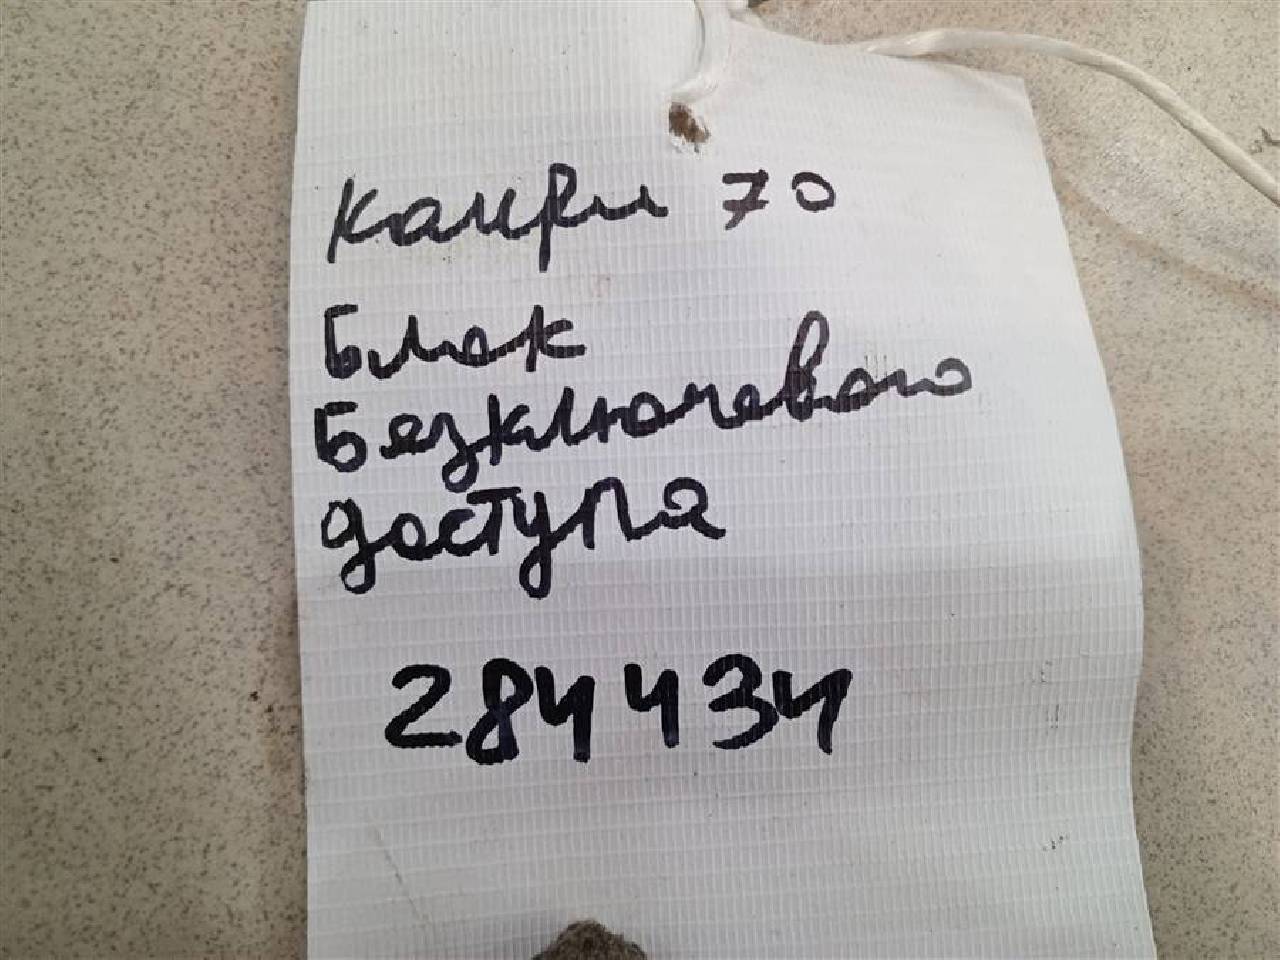 Камри 70
Блок
Безключевого
доступа
284434